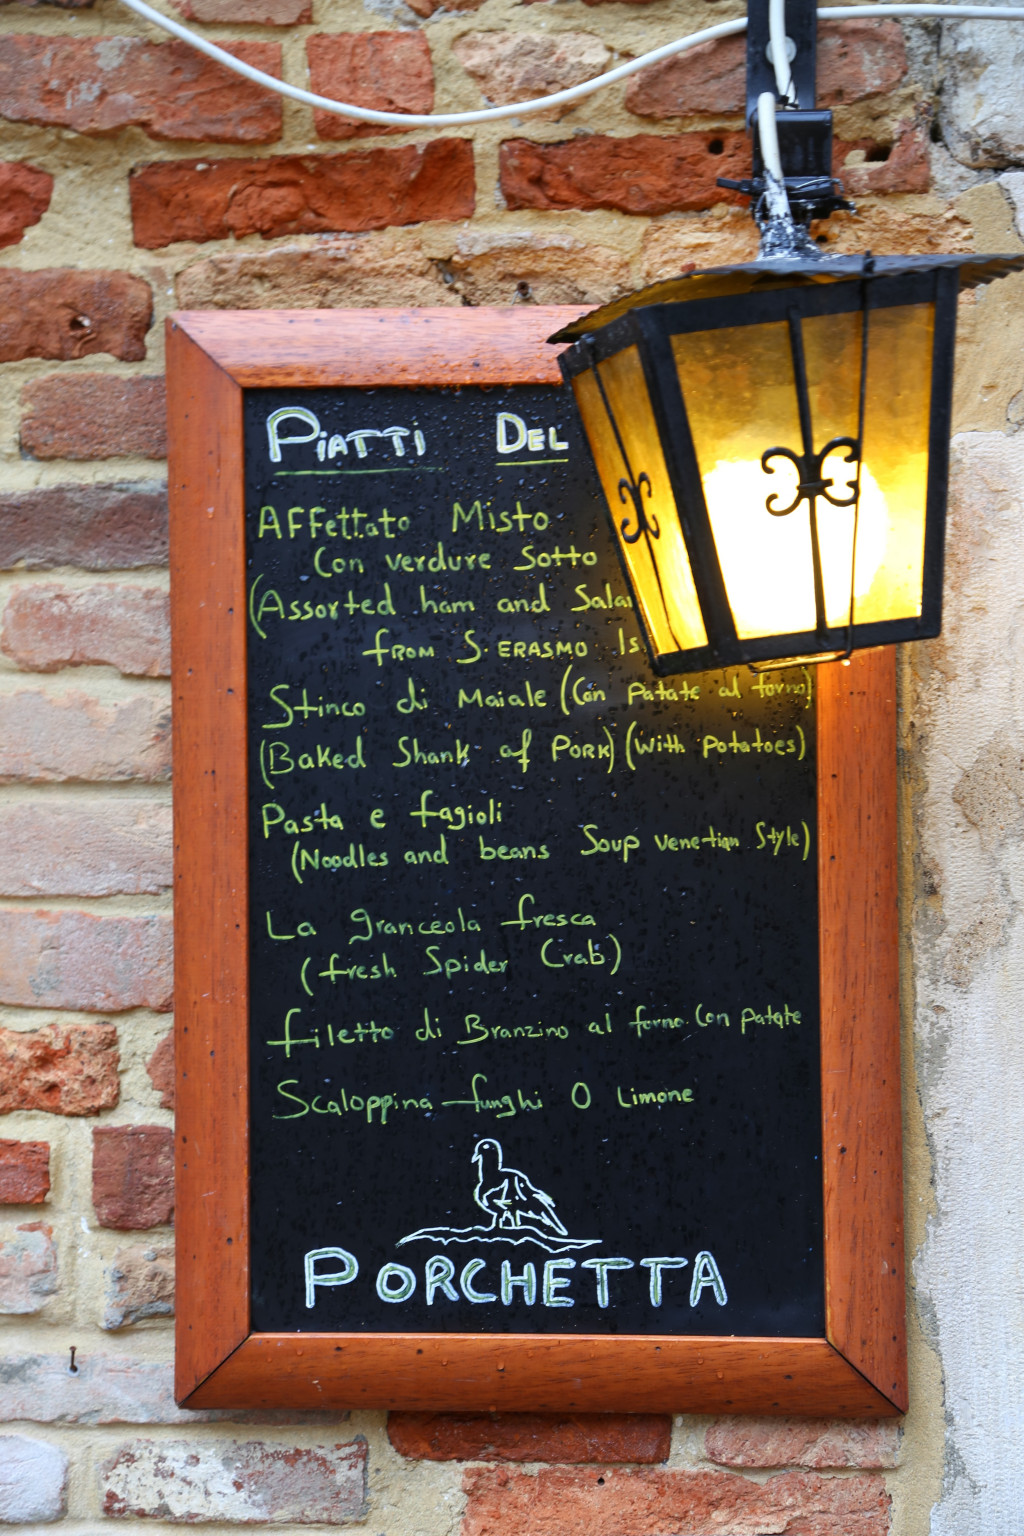 PiATTi DEL
AFFettato Misto
Con verdure Sotto
(Assorted ham and
from S. ERASMO
Stinco di Maiale (Con patate al forno)
(Baked Shank of PORK) (with potatoes)
Pasta e fagioli
(Noodles and beans Soup venetian Style)
La granceola fresca
(fresh Spider Crab)
filetto di Branzino al forno. Con patate
Scaloppina funghi O Limone
PORCHETTA